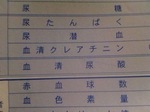 尿糖
尿たんぱく
尿潜血
血清クレアチニン
血清尿酸
赤血球数
血色素量